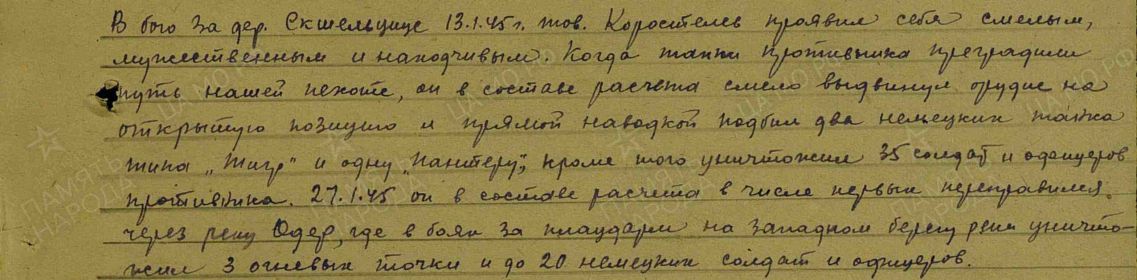 В бою за дер. Скшельцице 13.1.45 г. тов. Коростелев проявил себя смелым,
мужественным и находчивым. Когда танки противника преградили
путь нашей пехоте, он в составе расчета смело выдвинул орудие на
открытую позицию и прямой наводкой подбил два немецких танка
типа „Тигр" и одну „пантеру", кроме того уничтожил 35 солдат и офицеров
противника. 27.1.45 он в составе расчета в числе первых переправился
через реку Одер, где в боях за плацдарм на западном берегу реки уничто-
жил 3 огневых точки и до 20 немецких солдат и офицеров.